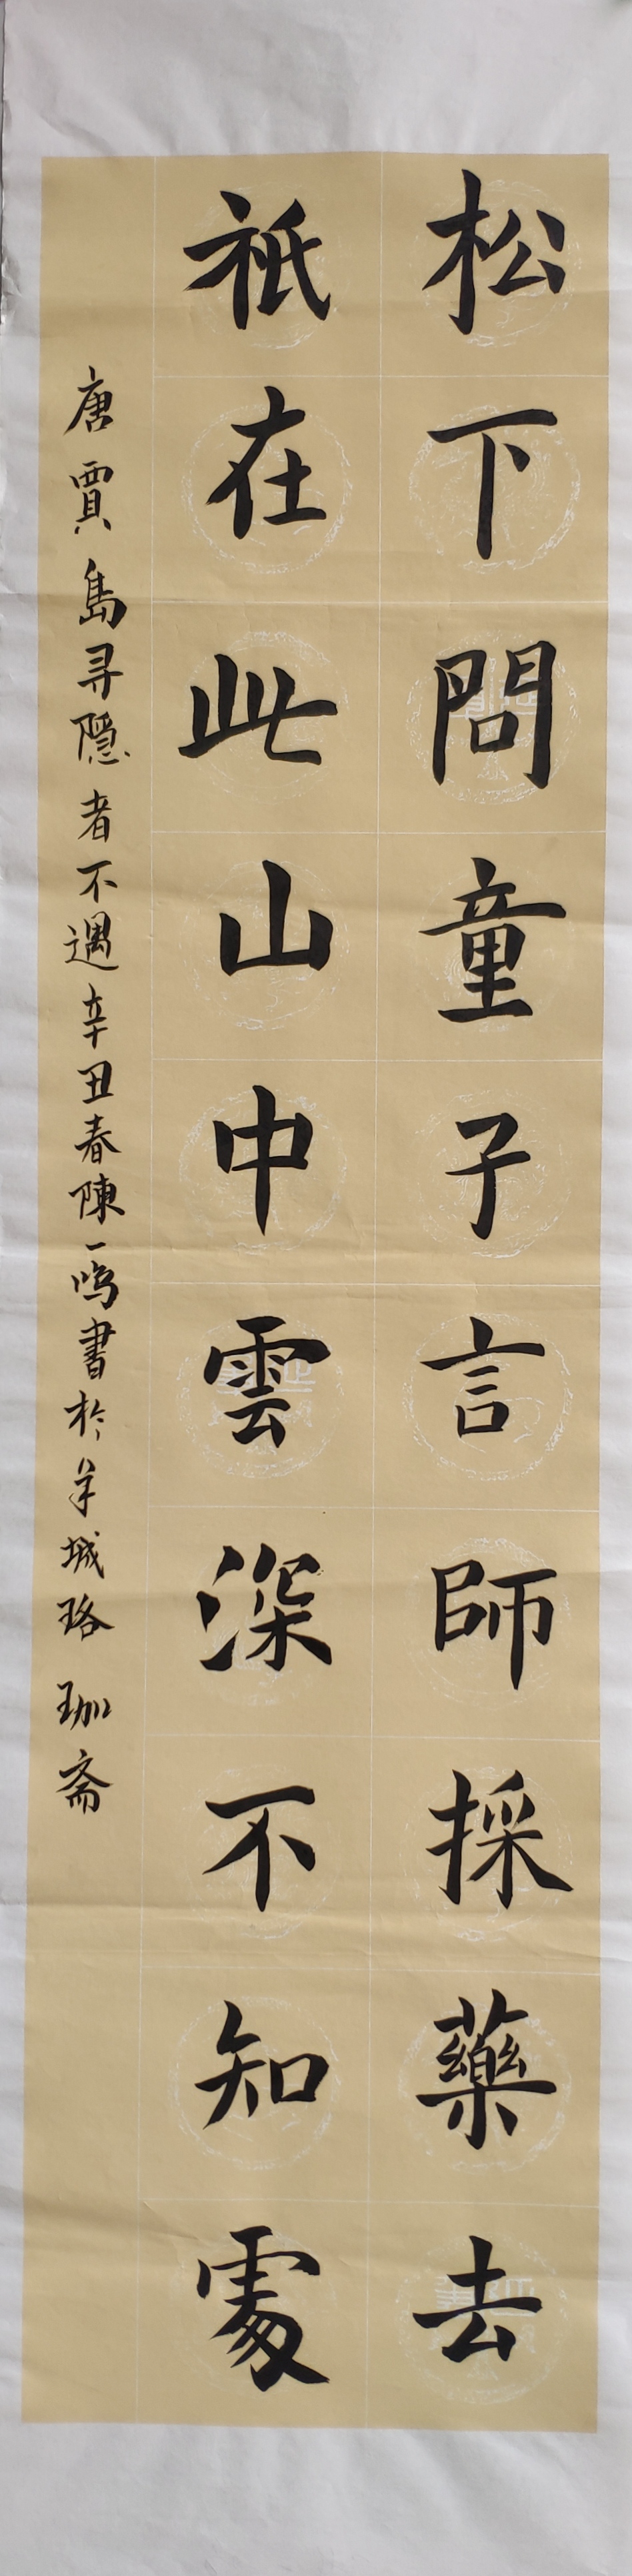 松下問童子言師採藥去
祇在此山中雲深不知處
唐賈島寻隱者不遇辛丑春陳一鳴書於羊城珞珈斋